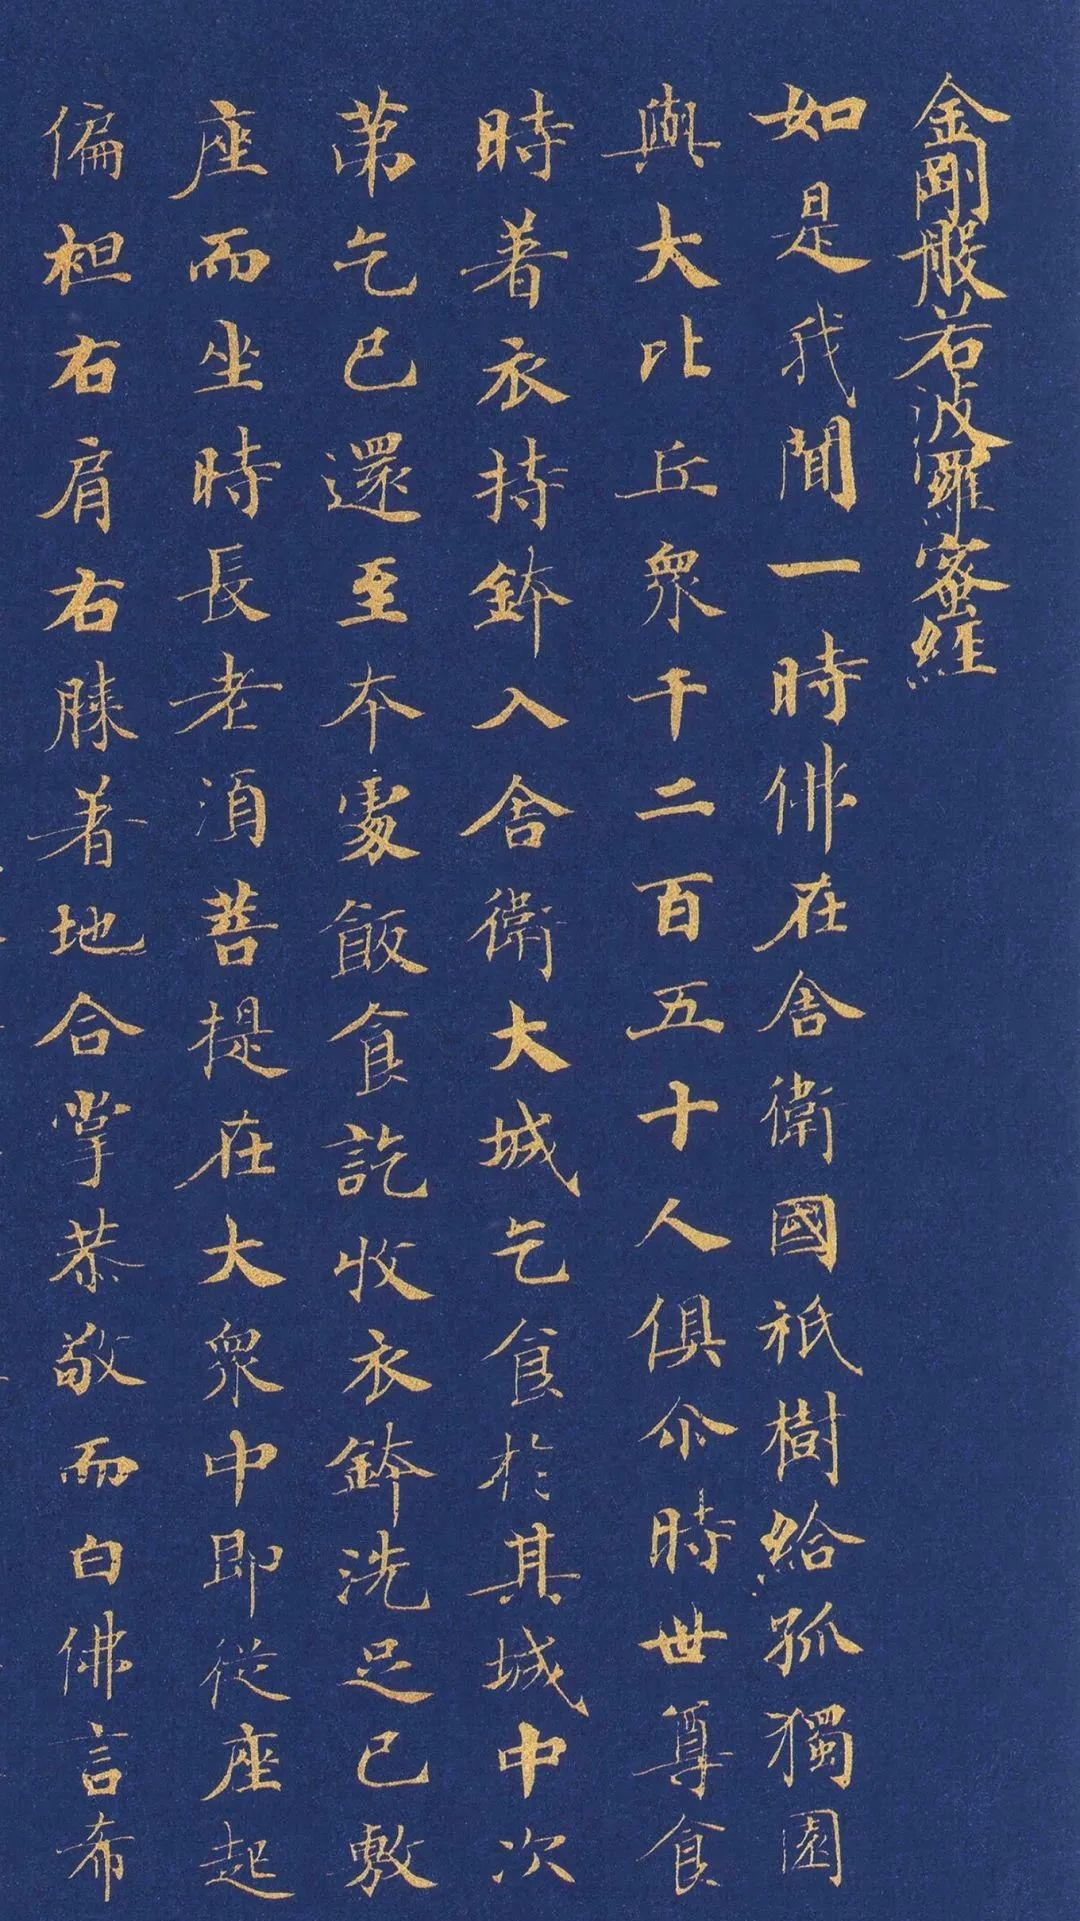 金剛般若波羅蜜經
如是我聞一時佛在舎衛國祇樹給孤獨園
與大比丘眾千二百五十人俱尒時世尊食
時著衣持鉢入舎衛大城乞食於其城中次
苐乞已還至本處飯食訖收衣鉢洗足已敷
座而坐時長老湏菩提在大眾中即從座起
偏袒右肩右膝著地合掌恭敬而白佛言希